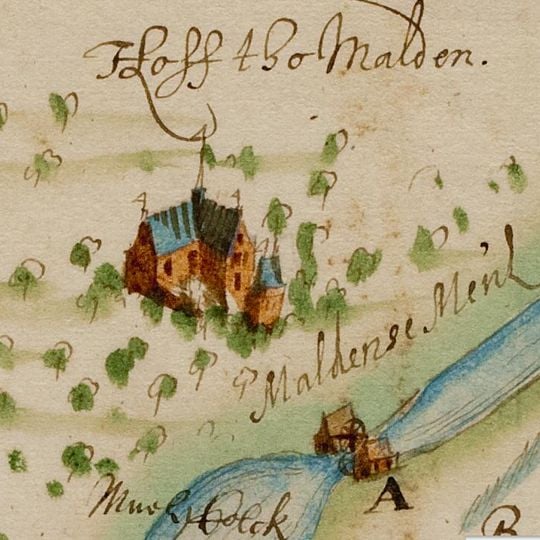 Thoff tho Malden.
Maldense Meul
A
Muel Kolck
B